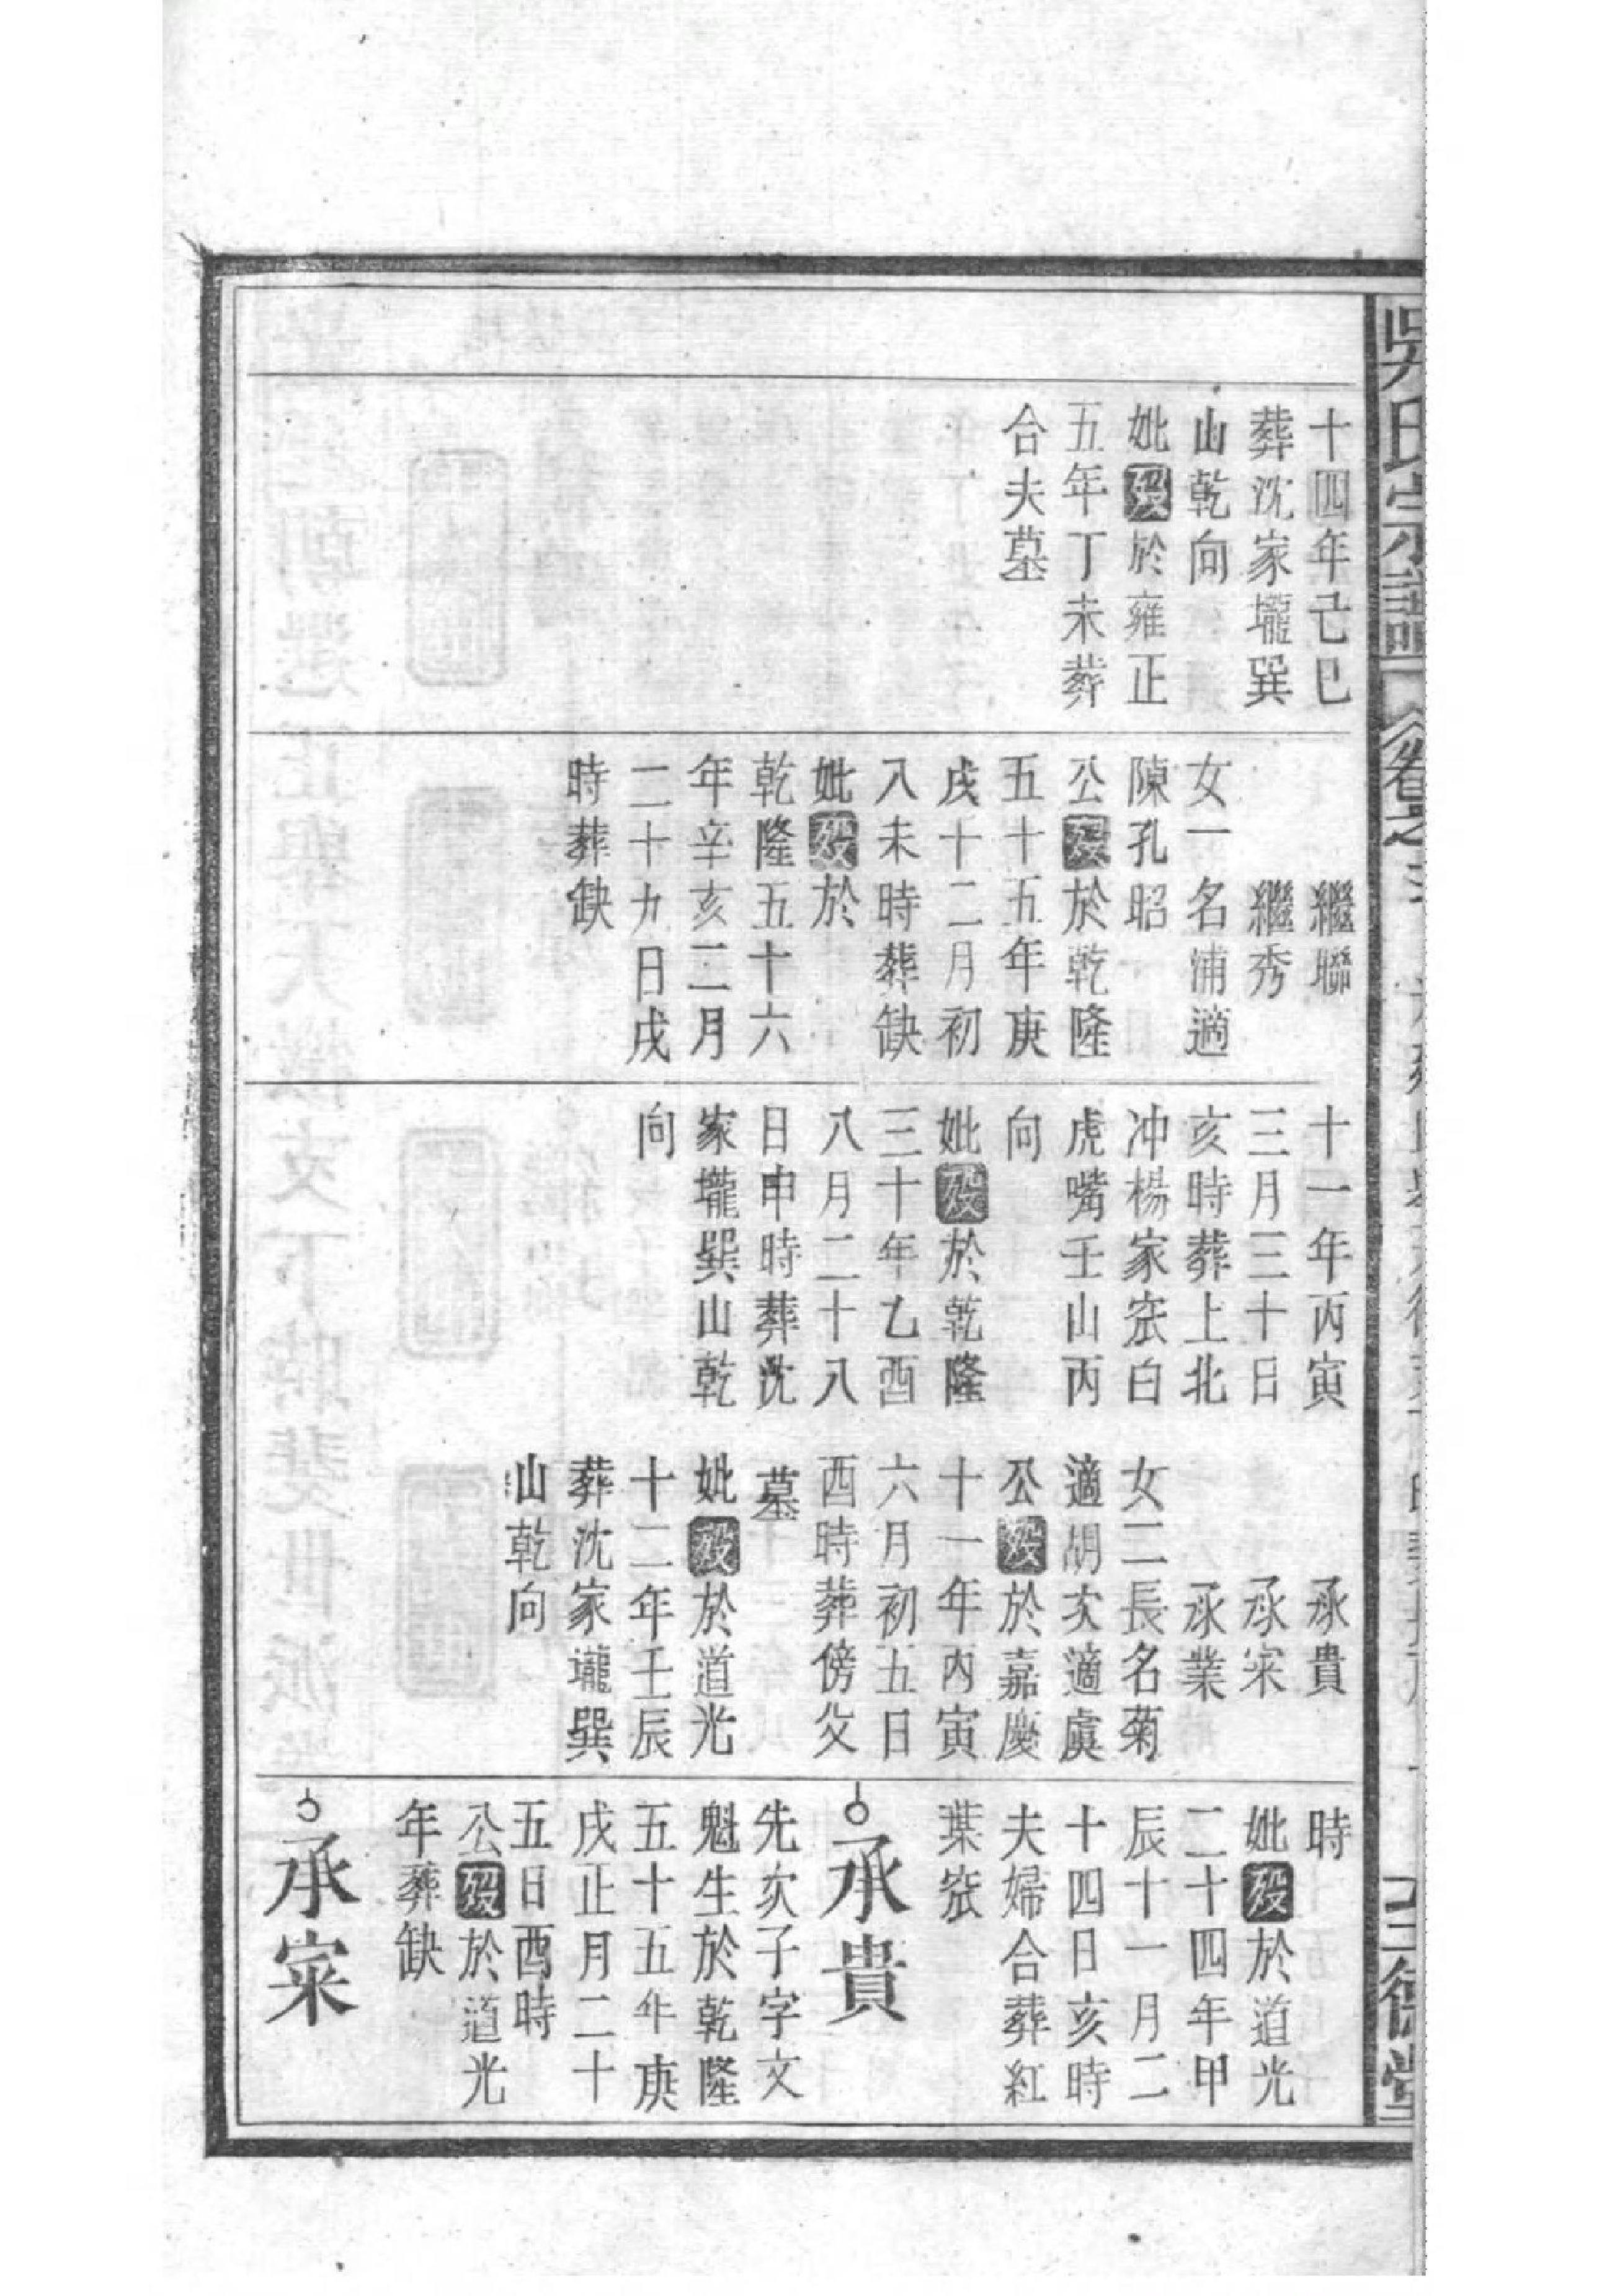 吳氏宗譜
三德堂
十四年己巳
葬沈家壠巽
山乾向
妣歿於雍正
五年丁未葬
合夫墓
繼聯
繼秀
女一名浦適
陳孔昭
公歿於乾隆
五十五年庚
戌十二月初
八未時葬缺
妣歿於
乾隆五十六
年辛亥二月
二十九日戌
時葬缺
十一年丙寅
三月三十日
亥時葬上北
冲楊家窊白
虎嘴壬山丙
向
妣歿於乾隆
三十年乙酉
八月二十八
日申時葬沈
家壠巽山乾
向
承貴
承寀
承業
女二長名菊
適胡次適虞
公歿於嘉慶
十一年丙寅
六月初五日
酉時葬傍父
墓
妣歿於道光
十二年壬辰
葬沈家壠巽
山乾向
時
妣歿於道光
二十四年甲
辰十一月二
十四日亥時
夫婦合葬紅
葉窊
承貴
先次子字文
魁生於乾隆
五十五年庚
戌正月二十
五日酉時
公歿於道光
年葬缺
承寀